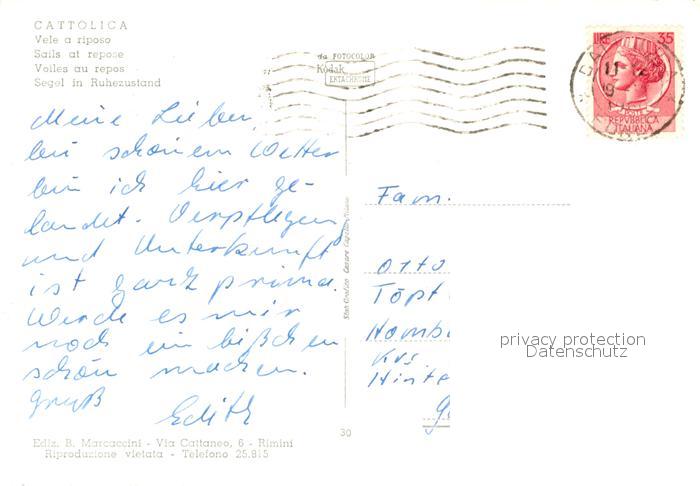 CATTOLICA
Vele a riposo
Sails at repose
Voiles au repos
Segel in Ruhezustand
da FOTOCOLOR
Kodak
EKTACHROME
LIRE 35
REPVBBLICA
ITALIANA
Meine Lieben,
bei schönem Wetter
bin ich hier ge-
landet. Verpflegung
und Unterkunft
ist ganz prima.
Werde es mir
noch ein bißchen
schön machen.
Gruß
Edith
Fam.
Otto
Töpf
Homb
Krs
Hinte
30
privacy protection
Datenschutz
Ediz. B. Marcaccini - Via Cattaneo, 6 - Rimini
Riproduzione vietata - Telefono 25.815